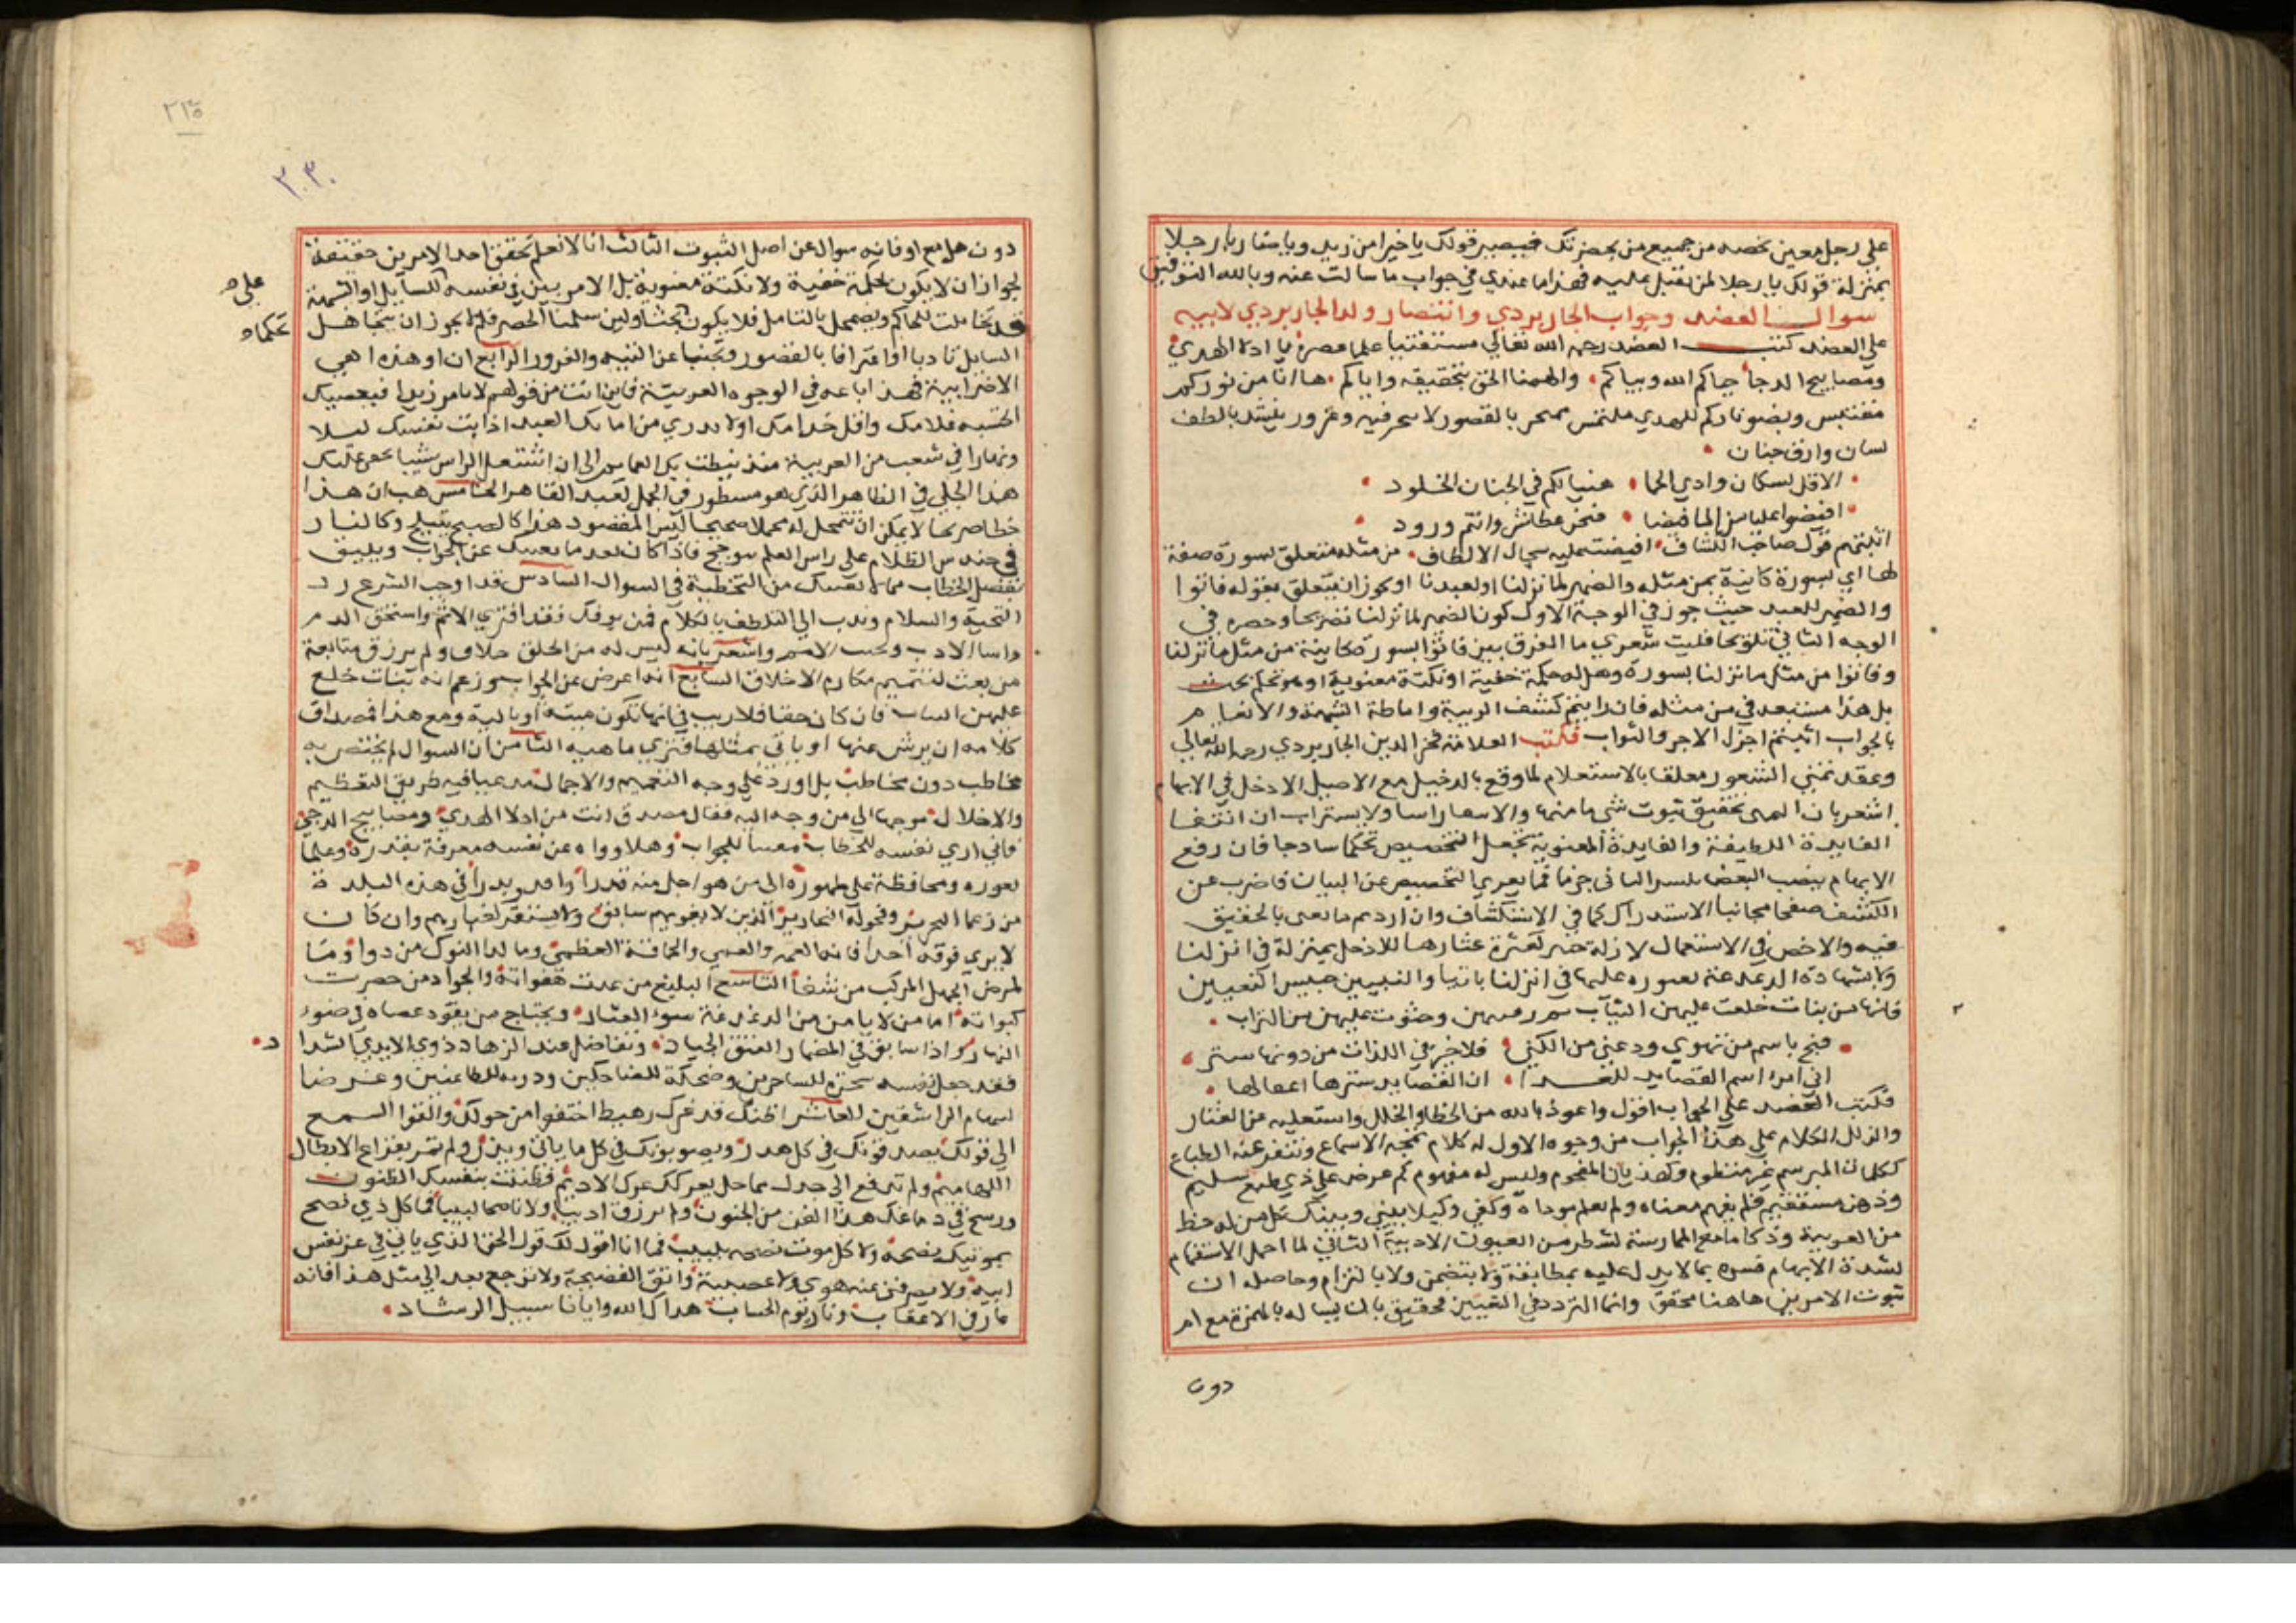 على رجل معين بخصه من جميع من بحضرتك فيصير قولك يا خيرا من زيد ويا ضاربا رجلا
بمنزلة قولك يا رجلا لمن تقبل عليه فهذا ما عندي في جواب ما سالت عنه وبالله التوفيق
سوال العضد وجواب الجاربردي وانتصار ولد الجاربردي لابيه
على العضد كتب العضد رحمه الله تعالى مستفتيا علما عصره يا ادلا الهدي
ومصابيح الدجا حياكم الله وبياكم والهمنا الحق بتحقيقه واياكم ها انا من نوركم
مقتبس وبضو ناركم للهدي ملتمس ممتحن بالقصور لا ممتحن ذو غرور ينشد باطلق
لسان وارق جنان
الا قل لسكان وادي الحما هنيا لكم في الجنان الخلود
افيضوا علينا من الما فيضا فنحن عطاش وانتم ورود
ابهم قول صاحب الكشاف افيضت عليه سجال الالطاف من مثله متعلق بسورة صفة
لها اي بسورة كاينة من مثله والضمير لما نزلنا او لعبدنا او يجوز ان يتعلق بقوله فاتوا
والضمير للعبد حيث جوز في الوجه الاول كون الضمير لما نزلنا تصريحا وحصره في
الوجه الثاني تلويحا فليت شعري ما الفرق بين فاتوا بسورة كاينة من مثل ما نزلنا
وفاتوا من مثل ما نزلنا بسورة وهل له حكمة خفية او نكتة معنوية او هو تحكم بحت
بل هذا مستبعد في من مثله فان رايتم كشف الريبة واماطة الشبهة والانعام
بالجواب اثبتم اجزل الاجر والثواب فكتب العلامة فخر الدين الجاربردي رحمه الله تعالى
وعقد تمني الشعور معلقا بالاستعلام لما وقع بالدخيل مع الاصيل الادخل في الابهام
اشعر بان المتمنى تحقيق ثبوت شي ما منهما والانتفاء راسا ولا يستراب ان انتفا
الفايدة اللطيفة والفايدة المعنوية يجعل التخصيص تحكما ساذجا فان رفع
الابهام بنصب البعض بكسر الباقي جزما فما يعري التخصيص عن البيان فاضرب عن
الكشف صفحا مجانبا الاستدراك كما في الاستكشاف وان اردتم ما يعني بالتحقيق
فيه والاخص في الاستعمال لا زلة خبر لعثرة عثارها للادخل بمنزلة في انزلنا
ولا بشهادة الدغدغة لعبوره عليها في انزلنا ثانيا والتبيين جبيس التعيين
فانها من بنات خلعت عليهن الثياب ثم رمسهن وحثوت عليهن من التراب
فبح باسم من تهوي ودعني من الكنى فلا خير في اللذات من دونها ستر
اني امرؤ اسم القصايد للعدا ان القصايد شرها اغفالها
فكتب العضد على الجواب اقول واعوذ بالله من الخطا والخلل واستعفيه من العثار
والزلل الكلام على هذا الجواب من وجوه الاول انه كلام تمجه الاسماع وتنفر عنه الطباع
ككلمات المبرسم غير منظوم وكهذيان المحموم وليس له مفهوم كم عرض على ذي طبع سليم
وذهن مستقيم فلم يفهم معناه ولم يعلم موداه وكفى وكيلا بيني وبينك كل من له حظ
من العربية وذكا ما مع الممارسة لشطر من الفنون الادبية الثاني لما اجمل الاستفهام
لشدة الابهام فسره بما لا يدل عليه بمطابقة ولا بتضمن ولا بالتزام وحاصله ان
ثبوت الامرين هاهنا محقق وانما التردد في التعيين فحقيق بان يسال بالهمزة مع ام
دون
٢١٥
٢٠٣٠
دون هل مع او فانه سوال عن اصل الثبوت الثالث انا لا نعلم تحقق احد الامرين حقيقة
لجواز ان لا يكون لحكمة خفية ولا نكتة معنوية بل الامر بين في نفسه للسايل او الشبهة
علي
قد تخايلت للحاكم ويضمحل بالتامل فلا يكون بحتا ولين سلمنا الحصر فلم لا يجوز ان يتجاهل
تحكما
السايل تادبا او اعترافا بالقصور وتجنبا عن التيه والغرور الرابع ان او هذه هي
الاضرابية فهذا باعه في الوجوه العربية فاين انت من قولهم لا تامر زيدا فيعصيك
اتحسبه غلامك واقل خدامك اولا تدري من امامك العبد اذابت نفسك ليلا
ونهارا في شعب من العربية منذ نيطت بك العمايم الى ان اشتعل الراس شيبا يخفى عليك
هذا الجلي في الظاهر الذي هو مسطور في الجمل لعبد القاهر الخامس هب ان هذا
خطا صريحا لا يمكن ان يتمحل له محملا صحيحا اليس المقصود هذا كالصبح يتبلج وكالنار
في حندس الظلام على راس العلم توجج فاذا كان بعد ما يعنيك عن الجواب ويليق
بفصل الخطاب مما لا يعنيك من التخطية في السوال السادس قد اوجب الشرع رد
التحية والسلام وندب الى التلطف بالكلام فمن يوفك فقد اقترف الاثم واستحق الذم
واسا الادب وتجنب الامم واشعر بانه ليس له من الخلق خلاق ولم يرزق متابعة
من بعث لتتميم مكارم الاخلاق السابع انه اعرض عن الجواب وزعم انه من بنات خلع
عليهن الثياب فان كان حقا فلا ريب في انها تكون ميتة او بالية ومع هذا فمصداق
كلامه ان ينبش عنها او ياتي بمثلها فنري ماهيه الثامن ان السوال لم يختص به
مخاطب دون مخاطب بل اورد على وجه التعميم والاجمال مدعيا فيه طريق التعظيم
والاجلال موجها الى من وجه اليه فقال صدق انت من ادلا الهدي ومصابيح الدجى
فاني اري نفسه للخطاب متعينا للجواب وهلا وراه عن نفسه معرفة بقدره وعلما
بعوره ومحافظة على ظهوره الى من هو اجل منه قدرا وانور بدرا في هذه البلدة
من زعما التحرير وفحولة النحارير الذين لا يفوتهم سابق ولا يشق غبارهم وان كان
لا يري فوقه احدا فانه العمه والعمي والحاقة العظمى وما لدا النوك من دوا وما
لمرض الجهل المركب من شفا التاسع البليغ من عدت هفواته والجواد من حصرت
كبواته اما من لا يامن من الدغدغة سوء العثار ويحتاج من يقود عصاه في ضوء
النهار اذا سابق في المضمار العتق الجياد وتفاضل عند الرهان ذوي الايدي الشداد
فقد جعل نفسه سخرة للساخرين وضحكة للضاحكين ودرية للطاعنين وغرضا
لسهام الراشقين العاشر اظنك قد غرك رهط احتفوا من حولك والقوا السمع
الى قولك يصدقونك في كل هذر ويصوبونك في كل ما ياتي ويذر ولم تمر بقراع الابطال
اللهاميم ولم تدفع الى جدل مماحل يعركك عرك الاديم فظننت بنفسك الظنون
ورسخ في دماغك هذا الفن من الجنون ولم ترزق اديبا ولا ناصحا لبيبا فما كل ذي نصح
بموتيك نصحه ولا كل موت نصحه بلبيب فها انا اقول لك قول الحق الذي ياتي في عز نفس
ابية ولا يصرفني عنه هوي ولا عصبية واتق الفضيحة ولا ترجع بعد الى مثل هذا فانه
عار في الاعقاب ونار يوم الحساب هداك الله وايانا سبيل الرشاد